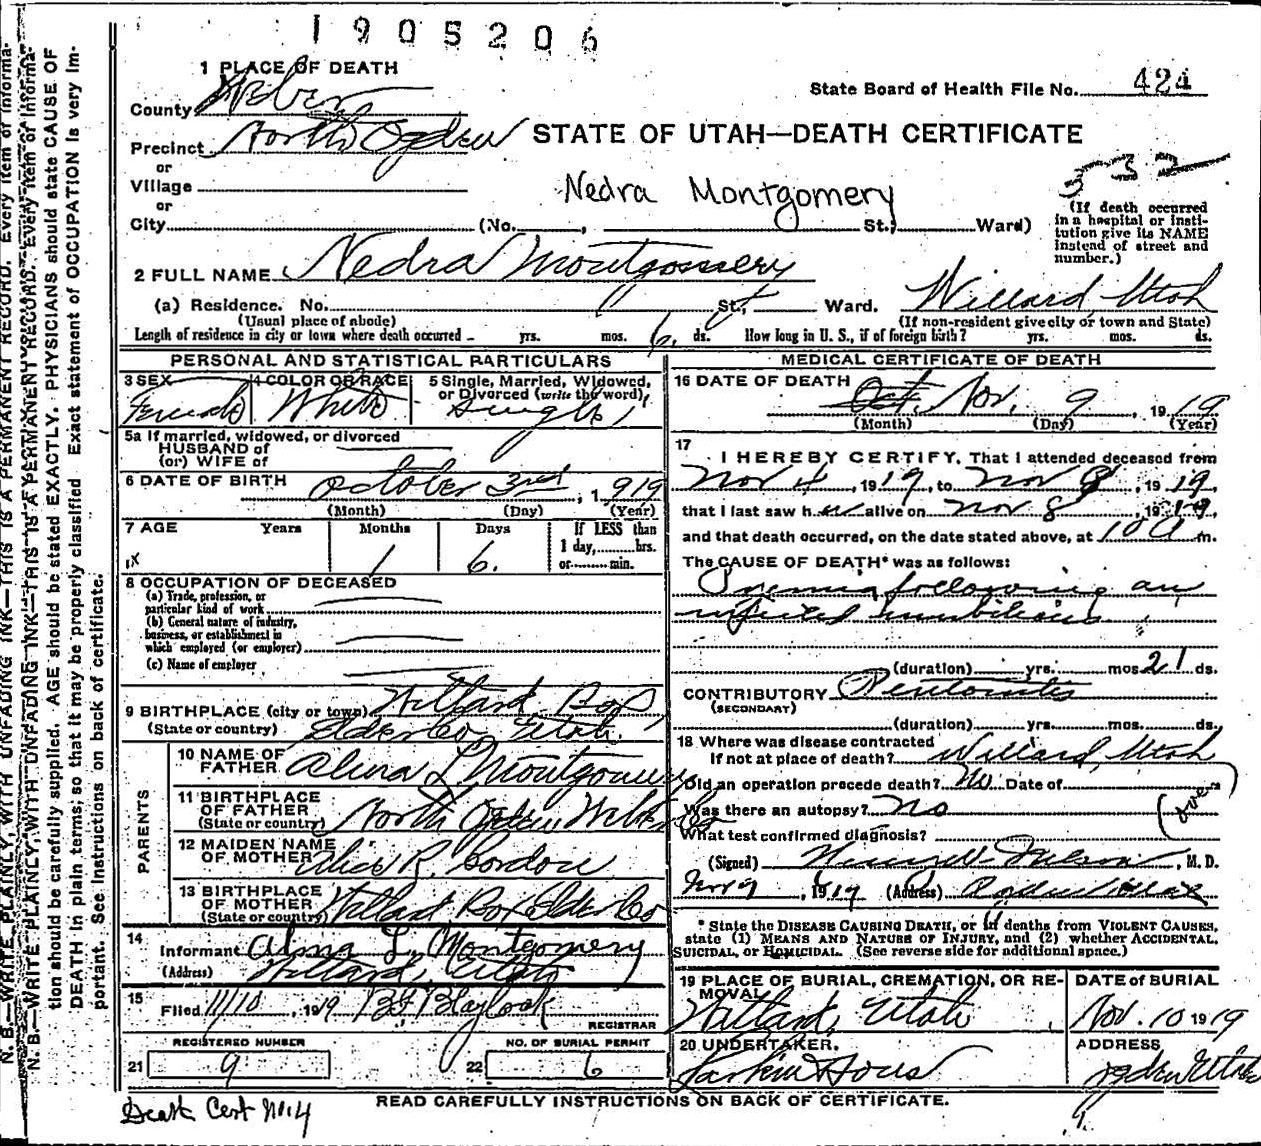 1905206
1 PLACE OF DEATH
State Board of Health File No. 424
County Weber
STATE OF UTAH—DEATH CERTIFICATE
Precinct North Ogden
or
Village
Nedra Montgomery
532
or
City (No. , St., Ward)
(If death occurred
in a hospital or insti-
tution give its NAME
instead of street and
number.)
2 FULL NAME Nedra Montgomery
(a) Residence. No. St., Ward. Willard, Utah
(Usual place of abode) (If non-resident give city or town and State)
Length of residence in city or town where death occurred – yrs. mos. 6 ds. How long in U. S., if of foreign birth? yrs. mos. ds.
PERSONAL AND STATISTICAL PARTICULARS
3 SEX 4 COLOR OR RACE 5 Single, Married, Widowed,
or Divorced (write the word)
Female White Single
5a If married, widowed, or divorced
HUSBAND of
(or) WIFE of
6 DATE OF BIRTH October 3rd, 1919
(Month) (Day) (Year)
7 AGE Years Months Days If LESS than
1 day, hrs.
or min.
1 6
8 OCCUPATION OF DECEASED
(a) Trade, profession, or
particular kind of work
(b) General nature of industry,
business, or establishment in
which employed (or employer)
(c) Name of employer
9 BIRTHPLACE (city or town) Willard Box
(State or country) Elder Co. Utah.
PARENTS
10 NAME OF
FATHER Alma L Montgomery
11 BIRTHPLACE
OF FATHER
(State or country) North Ogden Weber Co
12 MAIDEN NAME
OF MOTHER Alice R. Gordon
13 BIRTHPLACE
OF MOTHER
(State or country) Willard Box Elder Co
14
Informant Alma L. Montgomery
(Address) Willard, Utah
15
Filed 11/10, 1919 B F Blaylock
REGISTRAR
REGISTERED NUMBER
21 9
NO. OF BURIAL PERMIT
22 6
MEDICAL CERTIFICATE OF DEATH
16 DATE OF DEATH
Oct. Nov. 9, 1919
(Month) (Day) (Year)
17
I HEREBY CERTIFY, That I attended deceased from
Nov 4, 1919, to Nov 8, 1919,
that I last saw her alive on Nov 8, 1919,
and that death occurred, on the date stated above, at 10 a m.
The CAUSE OF DEATH* was as follows:
following an
infected umbilicus
(duration) yrs. mos. 21 ds.
CONTRIBUTORY Peritonitis
(SECONDARY)
(duration) yrs. mos. ds.
18 Where was disease contracted
If not at place of death? Willard, Utah
Did an operation precede death? No Date of
Was there an autopsy? No
(over)
What test confirmed diagnosis?
(Signed) Henry W. Nelson, M. D.
Nov 9, 1919 (Address) Ogden Utah
* State the DISEASE CAUSING DEATH, or if deaths from VIOLENT CAUSES,
state (1) MEANS AND NATURE OF INJURY, and (2) whether ACCIDENTAL,
SUICIDAL, or HOMICIDAL. (See reverse side for additional space.)
19 PLACE OF BURIAL, CREMATION, OR RE-
MOVAL
Willard, Utah
DATE of BURIAL
Nov. 10 1919
20 UNDERTAKER.
Larkin & Sons
ADDRESS
Ogden Utah
READ CAREFULLY INSTRUCTIONS ON BACK OF CERTIFICATE.
Death Cert No. 14
N. B.—WRITE PLAINLY, WITH UNFADING INK—THIS IS A PERMANENT RECORD. Every item of informa-
N. B.—WRITE PLAINLY, WITH UNFADING INK—THIS IS A PERMANENT RECORD. Every item of informa-
tion should be carefully supplied. AGE should be stated EXACTLY. PHYSICIANS should state CAUSE OF
DEATH in plain terms, so that it may be properly classified. Exact statement of OCCUPATION is very im-
portant. See instructions on back of certificate.